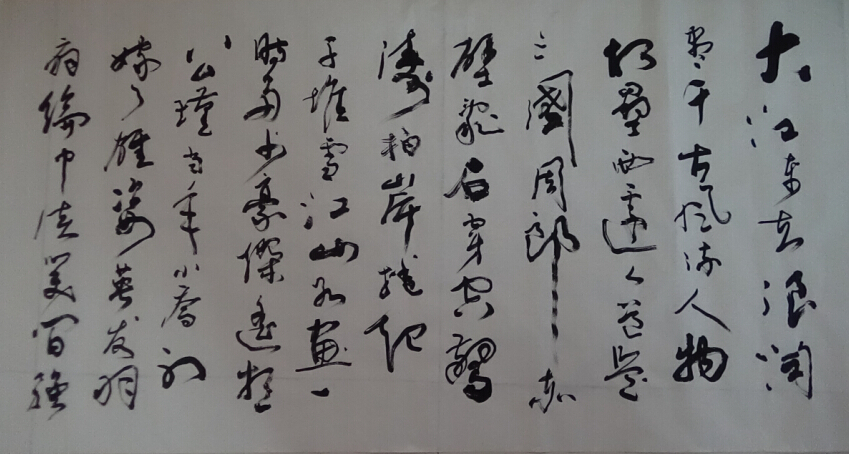 大江东去浪淘
尽千古風流人物
故壘西邊人道是
三國周郎赤
壁亂石穿空驚
濤拍岸捲起
千堆雪江山如畫一
時多少豪傑遥想
公瑾当年小喬初
嫁了雄姿英发羽
扇綸巾谈笑间强